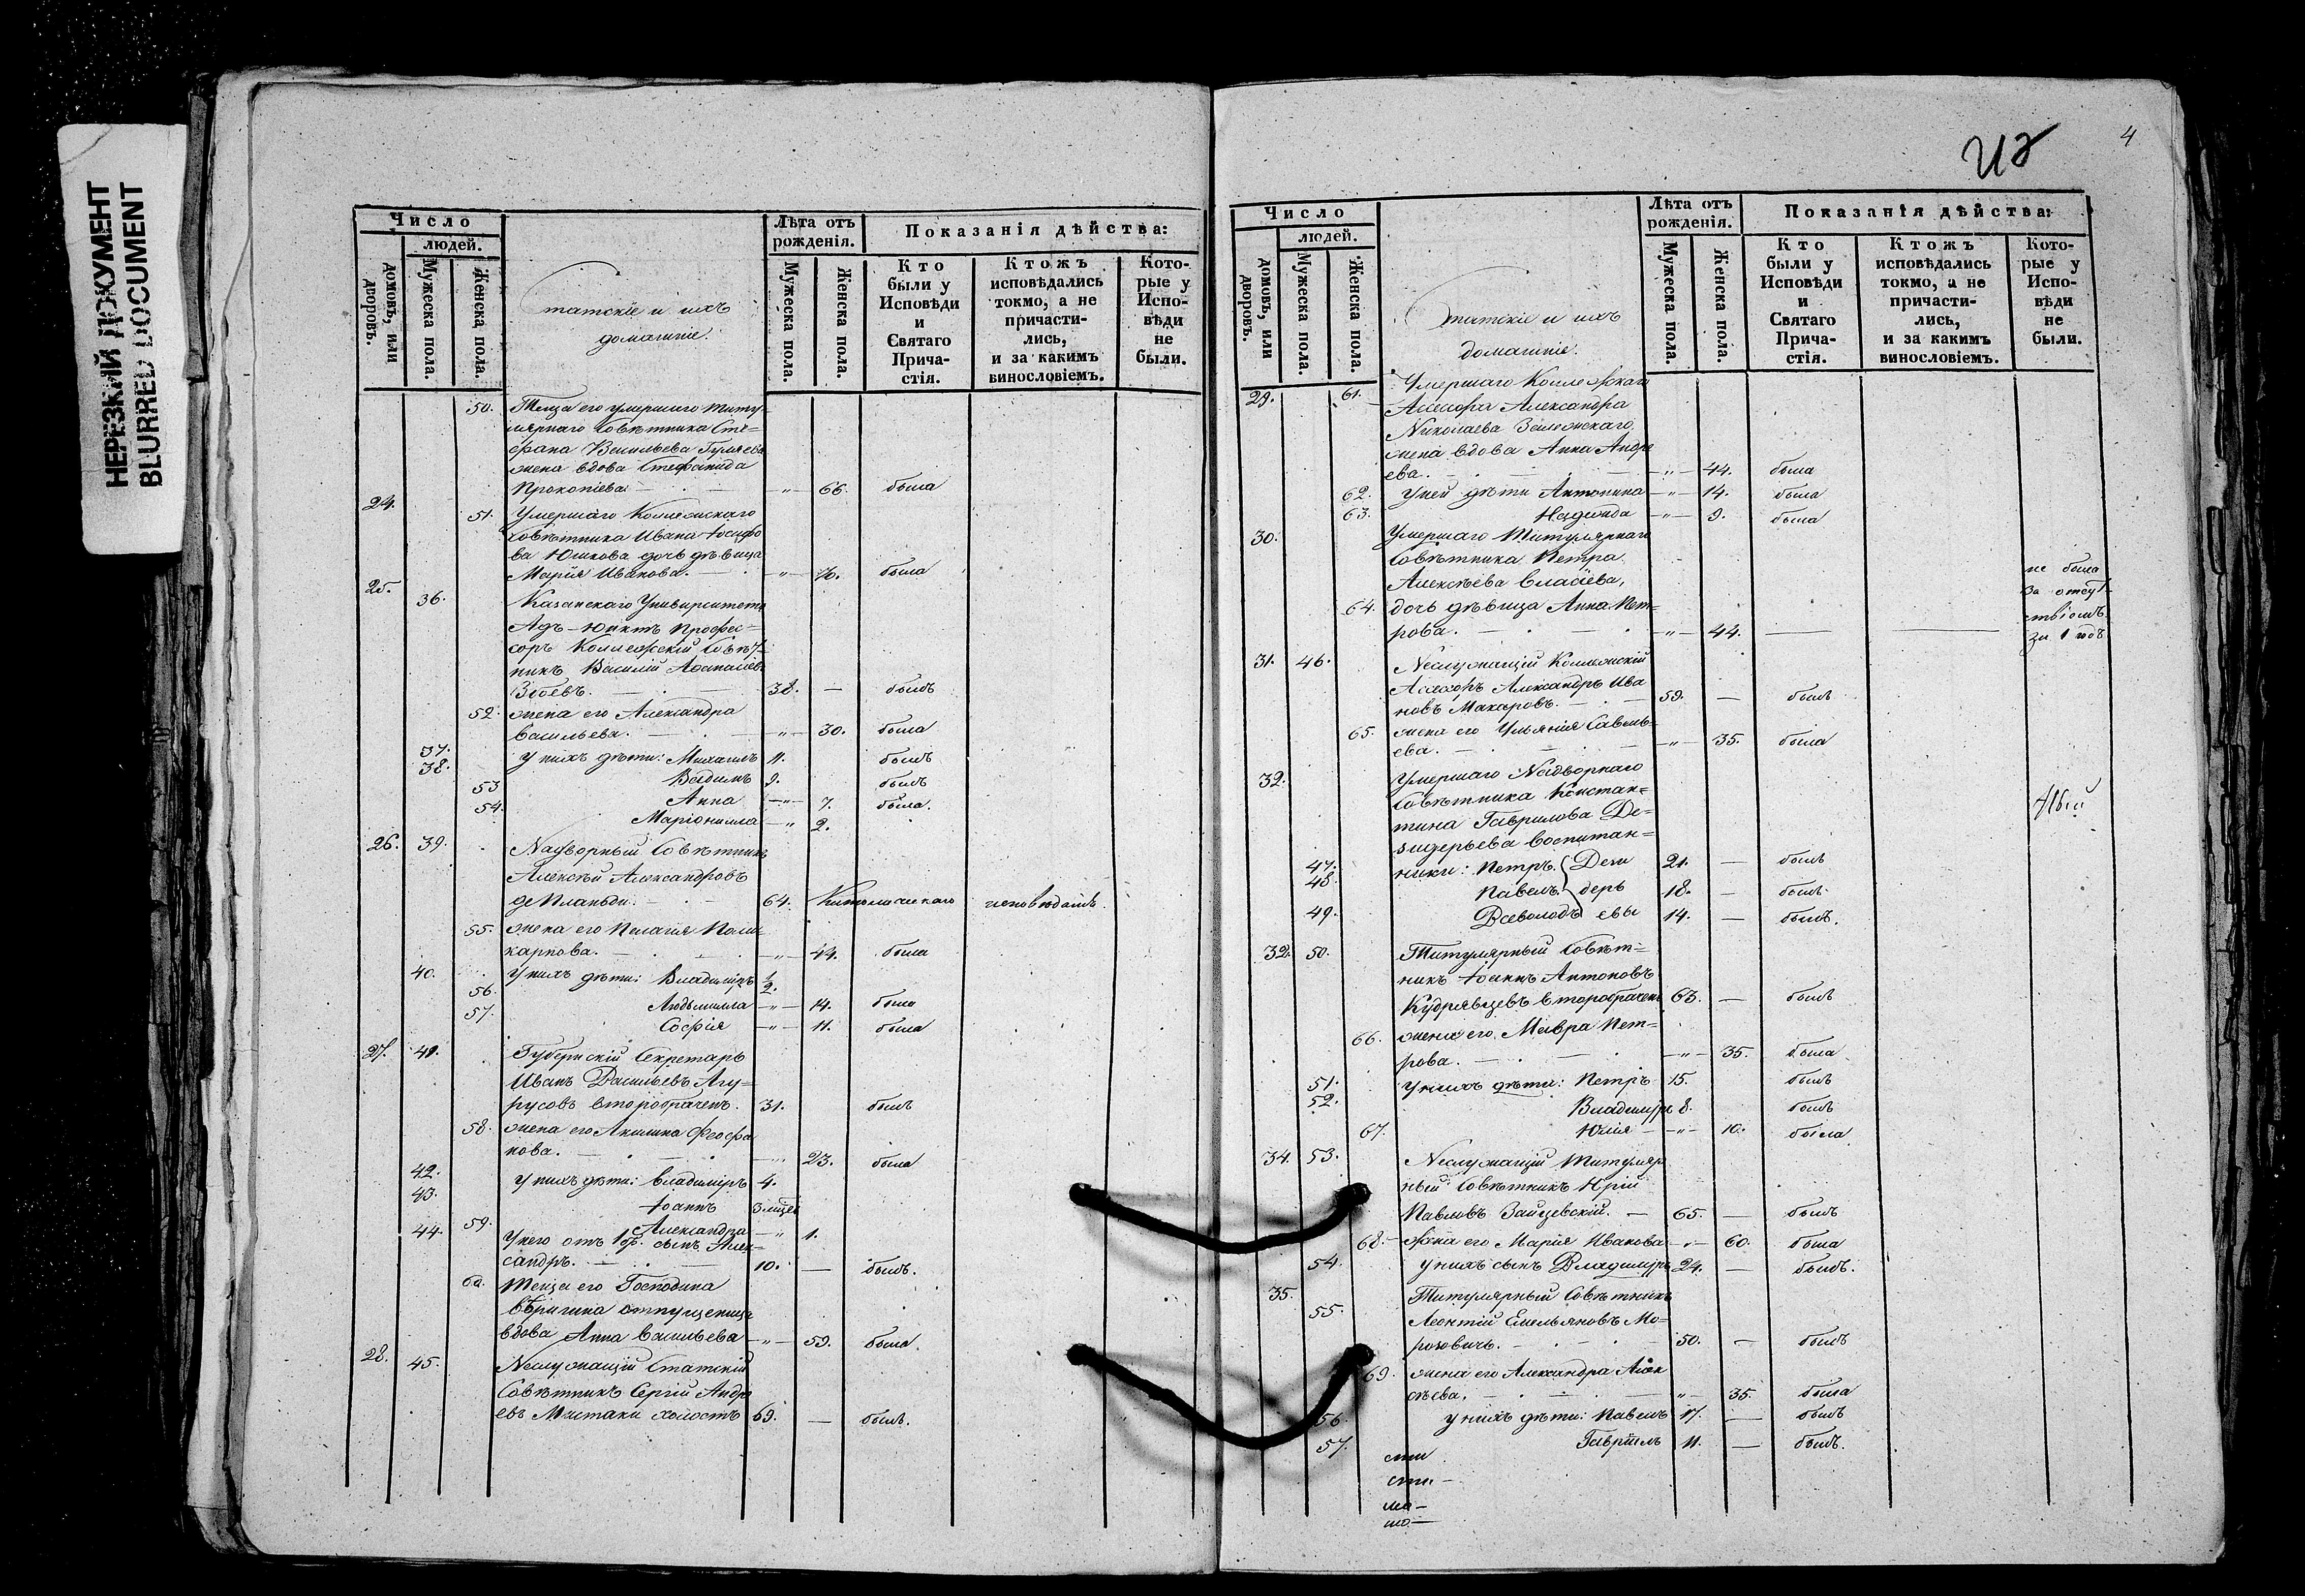 НЕРЕЗКИЙ ДОКУМЕНТ
BLURRED DOCUMENT
Число
людей.
домовъ, или дворовъ.
Мужеска пола.
Женска пола.
Статскіе и ихъ
домашніе.
Лѣта отъ рожденія.
Мужеска пола.
Женска пола.
Показанія дѣйства:
Кто были у Исповѣди и Святаго Прича-стія.
Ктожъ исповѣдались токмо, а не причасти-лись, и за какимъ винословіемъ.
Кото-рые у Испо-вѣди не были.
50. Теща его умершаго титу-
лярнаго Совѣтника Сте-
фана Васильева Гуляева
жена вдова Стефанида
Прокопіева — " — 66. была
24. 51. Умершаго Коллежскаго
Совѣтника Ивана Іосифо
ва Юшкова дочь дѣвица
Марія Иванова. — " — 70. была
25. 36. Казанскаго Университета
Адъ-Юнктъ Профес-
соръ Коллежскій Совѣт-
никъ Василій Афанасіевъ
Збоевъ. — 38. — былъ
52. жена его Александра
Васильева. — " — 30. была
37. у нихъ дѣти: Михаилъ 11. былъ
38. Вадимъ 9. былъ
53 Анна — " — 7. была.
54. Маріонилла — " 2.
26. 39. Надворный Совѣтникъ
Алексѣй Александровъ
де Планьди. — 64. Католическаго исповѣданія
55. жена его Пелагія Поли-
карпова. — " — 44. была
40. у нихъ дѣти: Владиміръ ½.
56. Людъмилла — " — 14. была
57. Софія — " — 11. была
27. 41. Губернскій Секретарь
Иванъ Васильевъ Агу-
русовъ второбраченъ. 31. былъ
58. жена его Акилина Феофа
нова. — " 23. была
42. у нихъ дѣти: Владиміръ 4.
43. Іоаннъ 3 мѣсяц
59. Александра — " 1.
44. У него отъ 1 бр. сынъ Алек-
сандръ. — 10. — былъ.
60. Теща его Господина
Вѣригина отпущеница
вдова Анна Васильева — " — 59. была.
28. 45. Неслужащій Статскій
Совѣтникъ Сергій Андре
евъ Мистаки холостъ 69. — былъ.
ИЗ
4
Число
людей.
домовъ, или дворовъ.
Мужеска пола.
Женска пола.
Статскіе и ихъ
домашніе.
Лѣта отъ рожденія.
Мужеска пола.
Женска пола.
Показанія дѣйства:
Кто были у Исповѣди и Святаго Прича-стія.
Ктожъ исповѣдались токмо, а не причасти-лись, и за какимъ винословіемъ.
Кото-рые у Испо-вѣди не были.
29. 61. Умершаго Коллежскаго
Асессора Александра
Николаева Залежскаго
жена вдова Анна Андре
ева. — " — 44. была
62. у ней дѣти Антонина — " — 14. была
63. Надежда — " — 9. была
30. Умершаго Титулярнаго
Совѣтника Петра
Алексѣева Власіева,
64. дочь дѣвица Анна Пет-
рова. — " — 44. — — не была
за отсут-
ствіемъ
за 1 годъ
31. 46. Неслужащій Коллежскій
Асессоръ Александръ Ива
новъ Макаровъ. — 59. — былъ
65. жена его Ульянія Савель-
ева. — " — 35. была
32. Умершаго Надворнаго
Совѣтника Констан-
тина Гаврилова Де-
зидерьева воспитан-
47. ники: Петръ Дези 21. — былъ
48. Павелъ дерь 18. — былъ
49. Всеволодъ евы 14. — былъ.
32. 50. Титулярный Совѣт-
никъ Іоаннъ Антоновъ
Кудрявцевъ второбраченъ 63. — былъ
66. жена его Мавра Пет-
рова. — " — 35. была
51. у нихъ дѣти: Петръ 15. былъ
52. Владиміръ 8. былъ
67. Юлія — " — 10. была
34. 53. Неслужащій Титуляр
ный Совѣтникъ Юрій
Павловъ Зайцевскій. — 65. — былъ
68. жена его Марія Иванова — " — 60. была
54. у нихъ сынъ Владиміръ 24. — былъ.
35. Титулярный Совѣтникъ
55. Леонтій Емельяновъ Мо-
розовичъ. — 50. — былъ
69. жена его Александра Алек
сѣева. — " — 35. была
56 у нихъ дѣти: Павелъ 17. — былъ
57. Гавріилъ 11. — былъ.